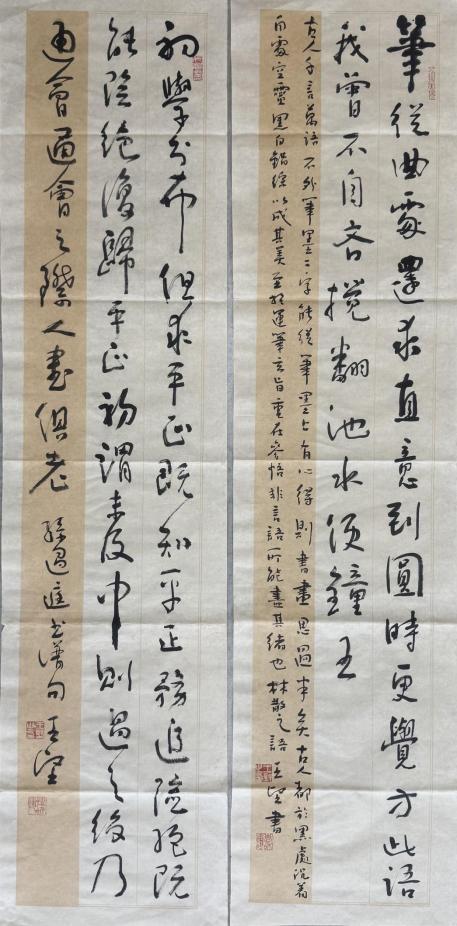 筆從曲處還求直意到圓時更覺方此語
我曾不自吝攪翻池水便鐘王
古人千言萬語不外筆墨二字能從筆墨上有心得則書畫思過半矣古人都於黑處沉着
白處空靈黑白錯綜以成其美至於運筆玄旨重在參悟非言語所能盡其緒也林散之語王望書
初學分布但求平正既知平正務追險絕既
能險絕復歸平正初謂未及中則過之後乃
通會通會之際人書俱老孫過庭書譜句王望